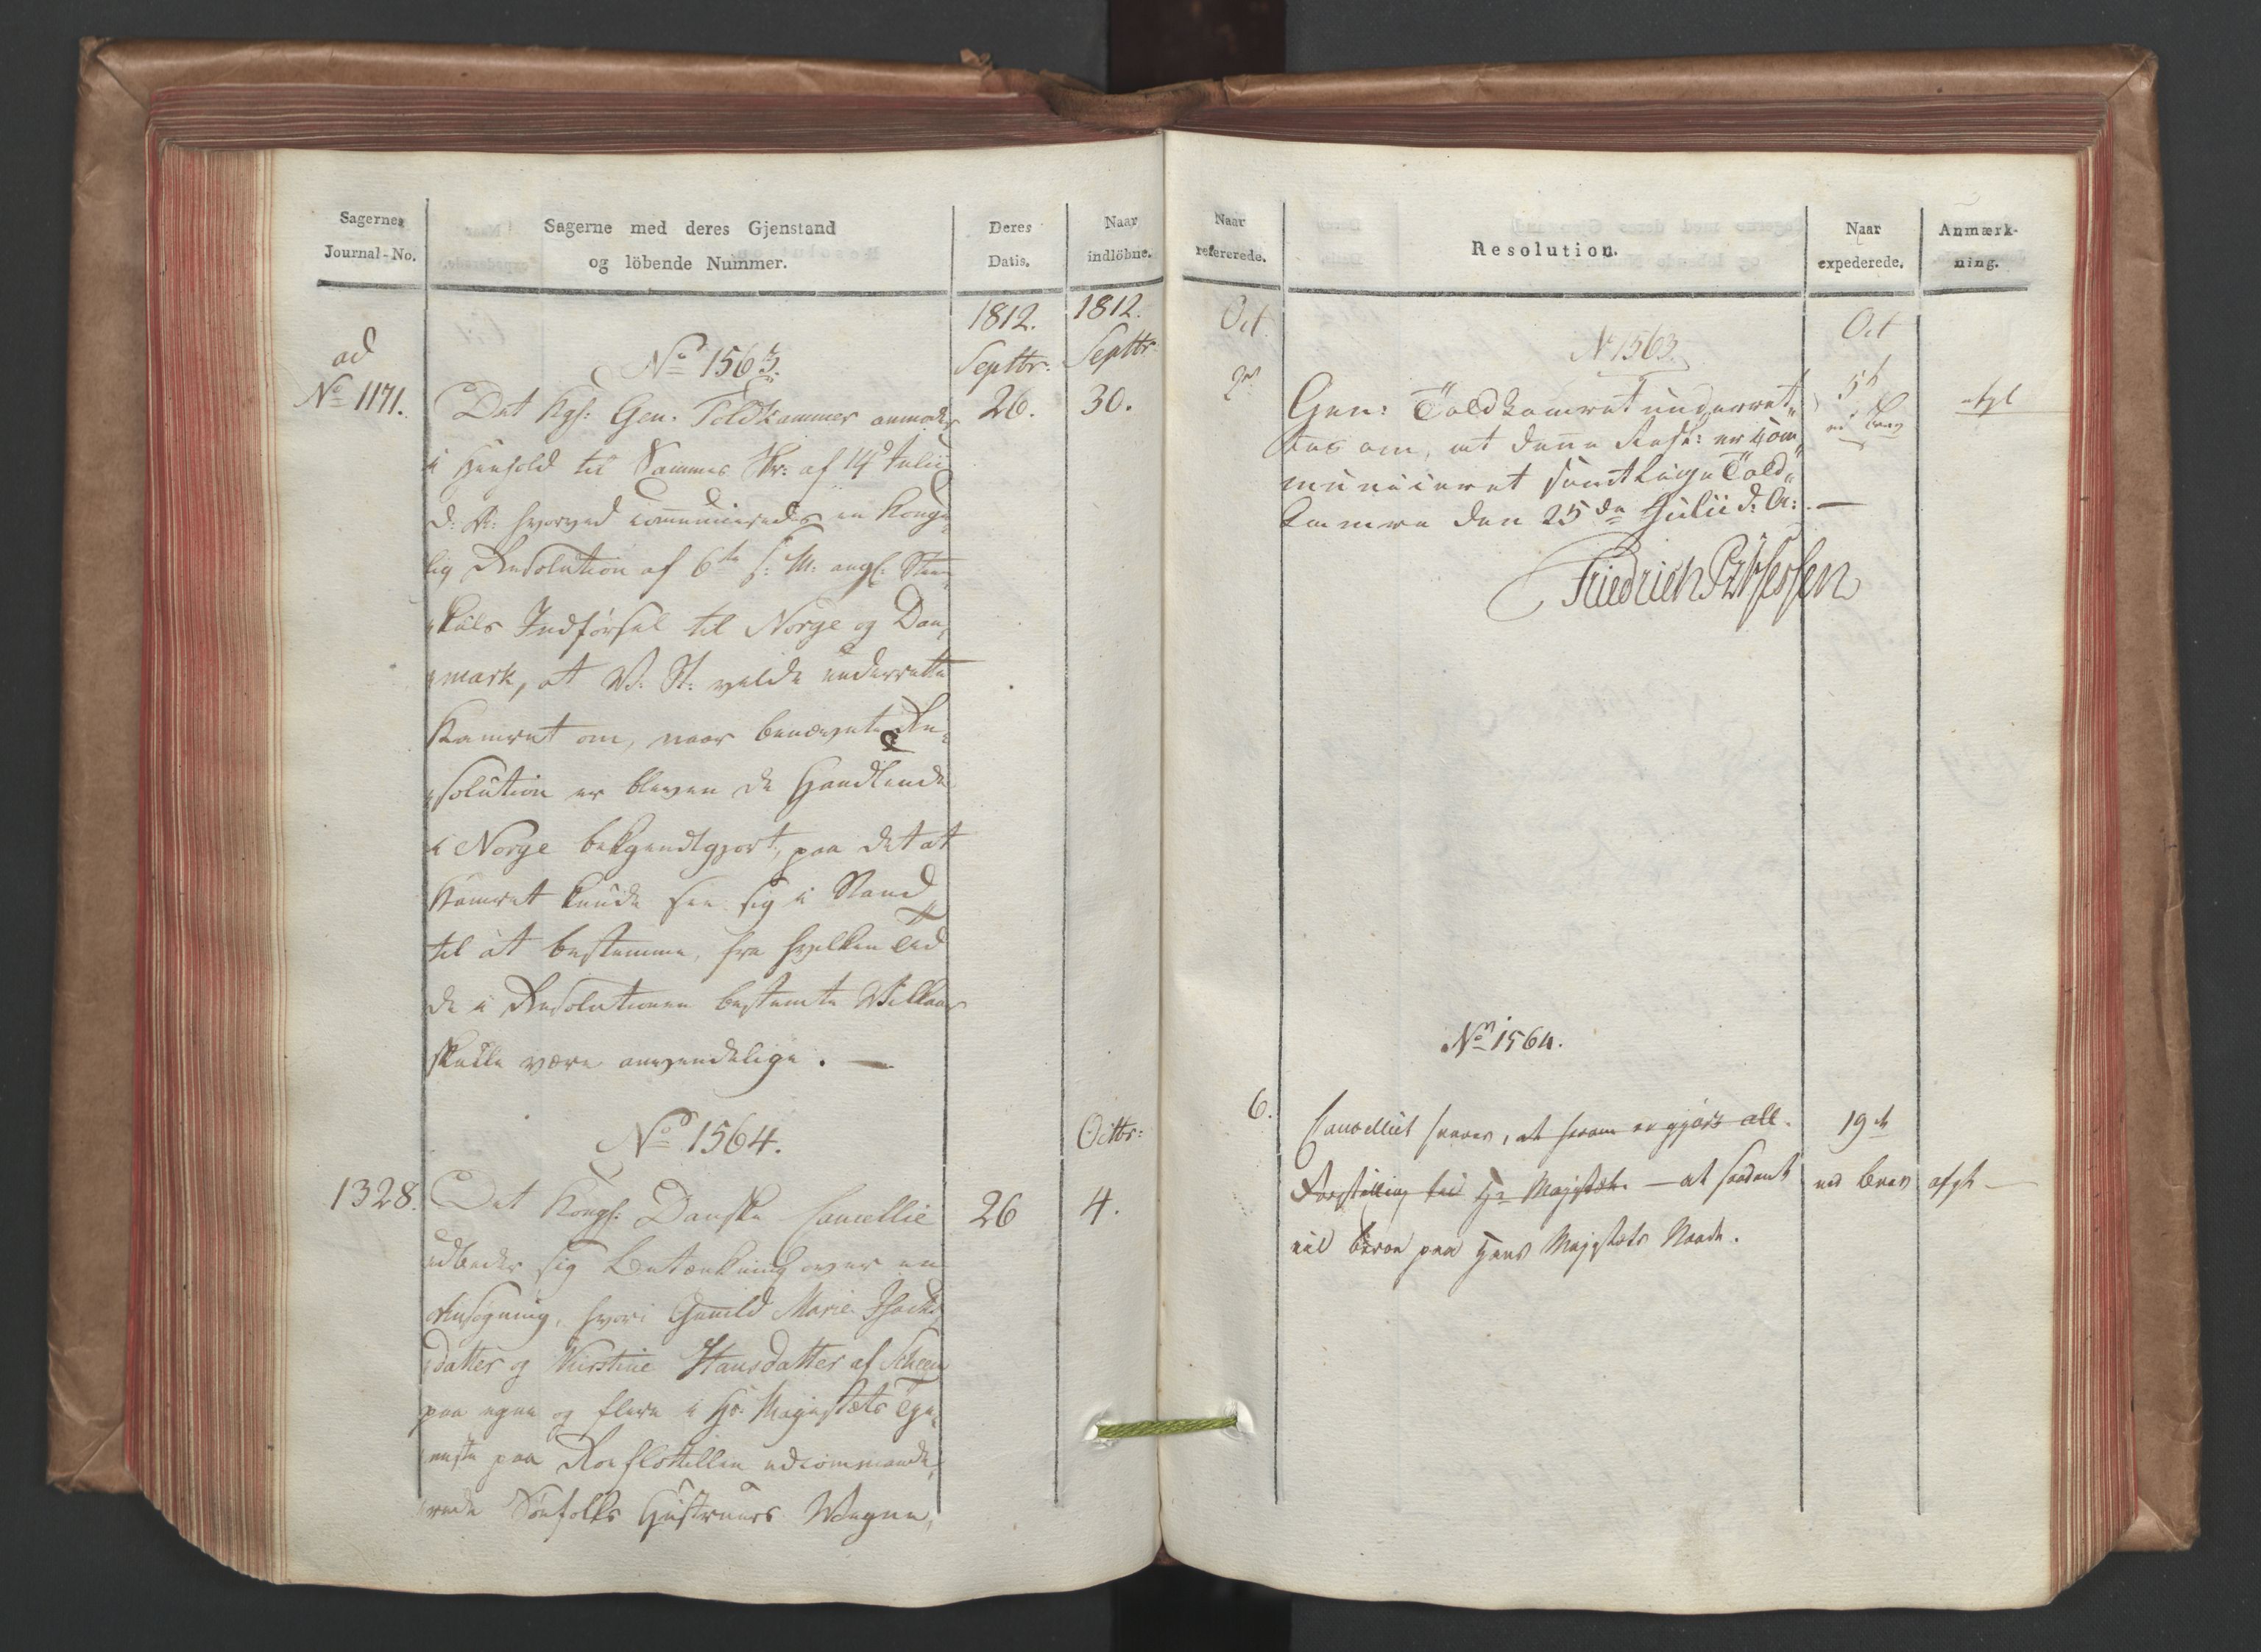 Sagernes
Journal-No.
Sagerne med deres Gjenstand
og löbende Nummer.
Deres
Datis.
Naar
indlöbne.
1812.
1812.
Septbr:
Septbr:
ad
No 1171.
No 1563.
26.
30.
Det Kgl: Gen. Toldkammer anmoder
i Henhold til Sammes Skr: af 14d Julii
d: A: hvorved communiceredes en Konge„
lig Resolution af 6te s: M: angl: Steen„
„kuls Indførsel til Norge og Dan„
„mark, at V: St: vilde underrette
Kamret om, naar benævnte Re„
„solution er bleven de Handlende
i Norge bekjendtgjort, paa det at
Kamret kunde see sig i Stand
til at bestemme, fra hvilken Tid
de i Resolutionen bestemte Vilkaar
skulle være anvendelige. —
No 1564.
Octbr:
1328.
26
4.
Det Kongl: Danske Cancellie
udbeder sig Betænkning over en
Ansøgning, hvori Gunild Marie
„datter og Kirstine Hansdatter af Scheen
paa egne og flere i Hs: Majestæts Tje„
„neste paa Roeflotillen udcommande„
„rede Søefolks Hustruers Vegne,
Naar
refererede.
Resolution.
Naar
expederede.
Anmærk-
ning.
Oct.
Oct
No 1563.
2den
5t
ved Brev
afgl
Gen: Toldkamret underret„
tes om, at denne Resl: er com„
municeret samtlige Told„
kamre den 25de Julii d: A: —
Friedrich
No 1564.
6.
Cancelliet svares, at herom er gjort all.
Forestilling til Hs Majestæt. — at saadant
vil beroe paa Hans Majestæts Naade.
19de
ved Brev
afgt —